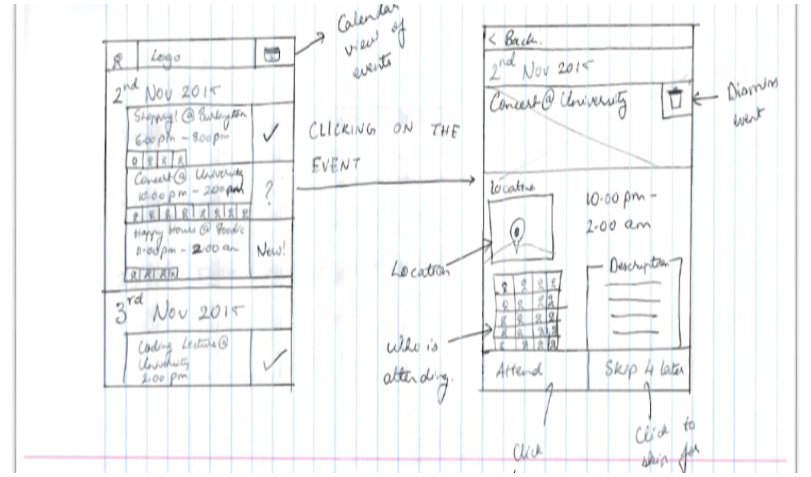 Calendar
view of
events
Logo
2nd Nov 2015
Shopping! @ Burlington
6:00 pm - 8:00 pm
Concert @ University
10:00 pm - 2:00 am
?
Happy Hours @
11:00 pm - 2:00 am
New!
3rd Nov 2015
Coding Lecture @
University
2:00 pm
CLICKING ON THE
EVENT
< Back.
2nd Nov 2015
Concert @ University
Dismiss
event
Location
10.00 pm -
2.00 am
Location
Description
Who is
attending.
Attend
Skip 4 later
Click
Click to
skip for